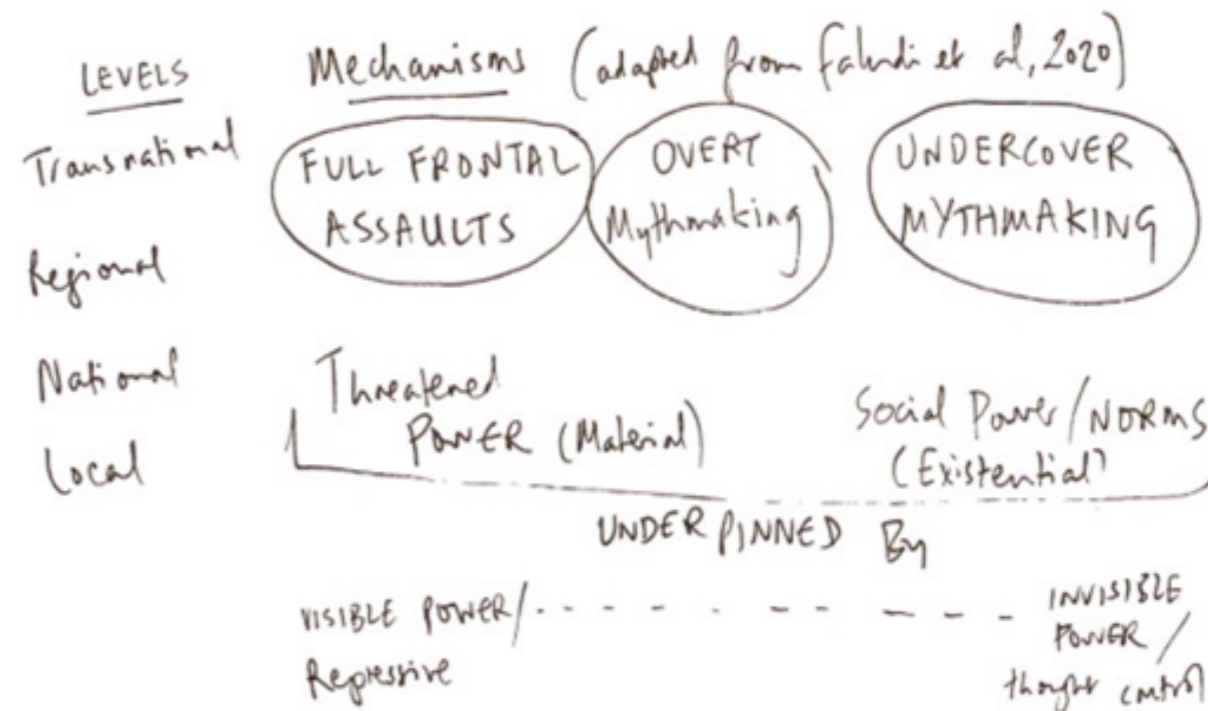 LEVELS
Mechanisms (adapted from Faludi et al, 2020)
Transnational
Regional
National
Local
FULL FRONTAL
ASSAULTS
OVERT
Mythmaking
UNDERCOVER
MYTHMAKING
Threatened
POWER (Material)
Social Power/NORMS
(Existential)
UNDERPINNED By
VISIBLE POWER/
Repressive
INVISIBLE
POWER/
thought control